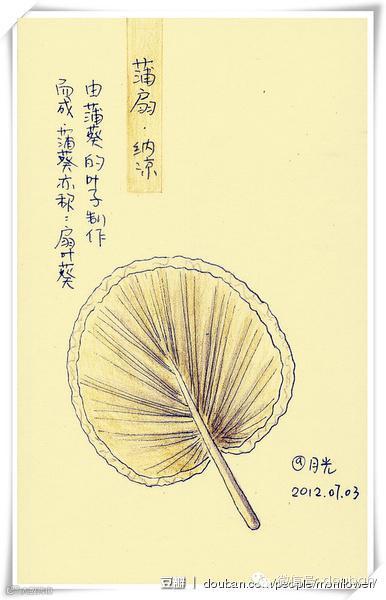 蒲扇·纳凉
由蒲葵的叶子制作
而成.蒲葵亦称：扇叶葵
@月光
2012.07.03
豆瓣 | douban.com/people/monflower/